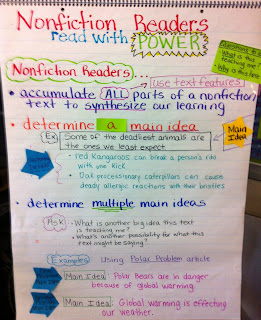 Nonfiction Readers
read with POWER
Questions to Ask
What is this teaching me?
Why is this here?
Nonfiction Readers...
use text features
• accumulate ALL parts of a nonfiction
text to synthesize our learning
• determine a main idea
Main Idea
Ex
Some of the deadliest animals are
the ones we least expect
• red Kangaroos can break a person's ribs
with one kick
• Oak processionary caterpillars can cause
deadly allergic reactions with their bristles
• determine multiple main ideas
Ask
• What is another big idea this text
is teaching me?
• What's another possibility for what this
text might be saying?
Examples Using Polar Problem article
Main Idea: Polar Bears are in danger
because of global warming.
Main Idea: Global warming is effecting
our weather.